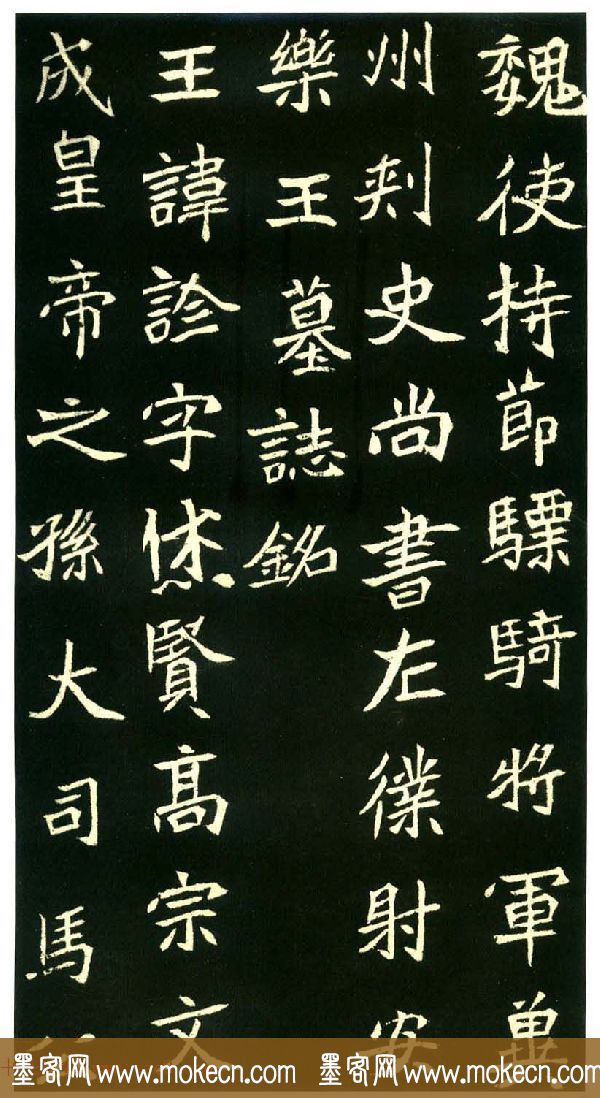 魏使持節驃騎將軍冀
州刾史尚書左㒒射安
樂王墓誌銘
王諱詮字休賢高宗文
成皇帝之孫大司馬
墨客网 www.mokecn.com 墨客网 www.mokecn.com